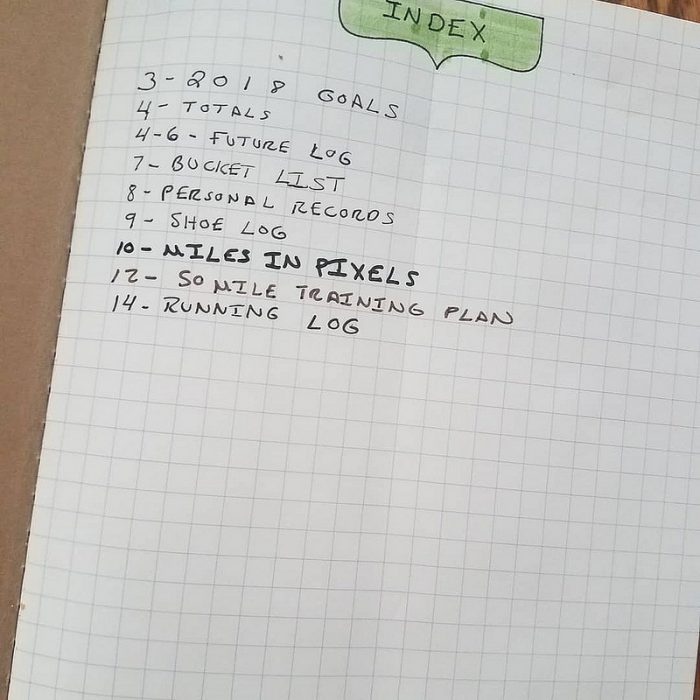 INDEX
3 - 2018 GOALS
4 - TOTALS
4-6 - FUTURE LOG
7 - BUCKET LIST
8 - PERSONAL RECORDS
9 - SHOE LOG
10 - MILES IN PIXELS
12 - 50 MILE TRAINING PLAN
14 - RUNNING LOG